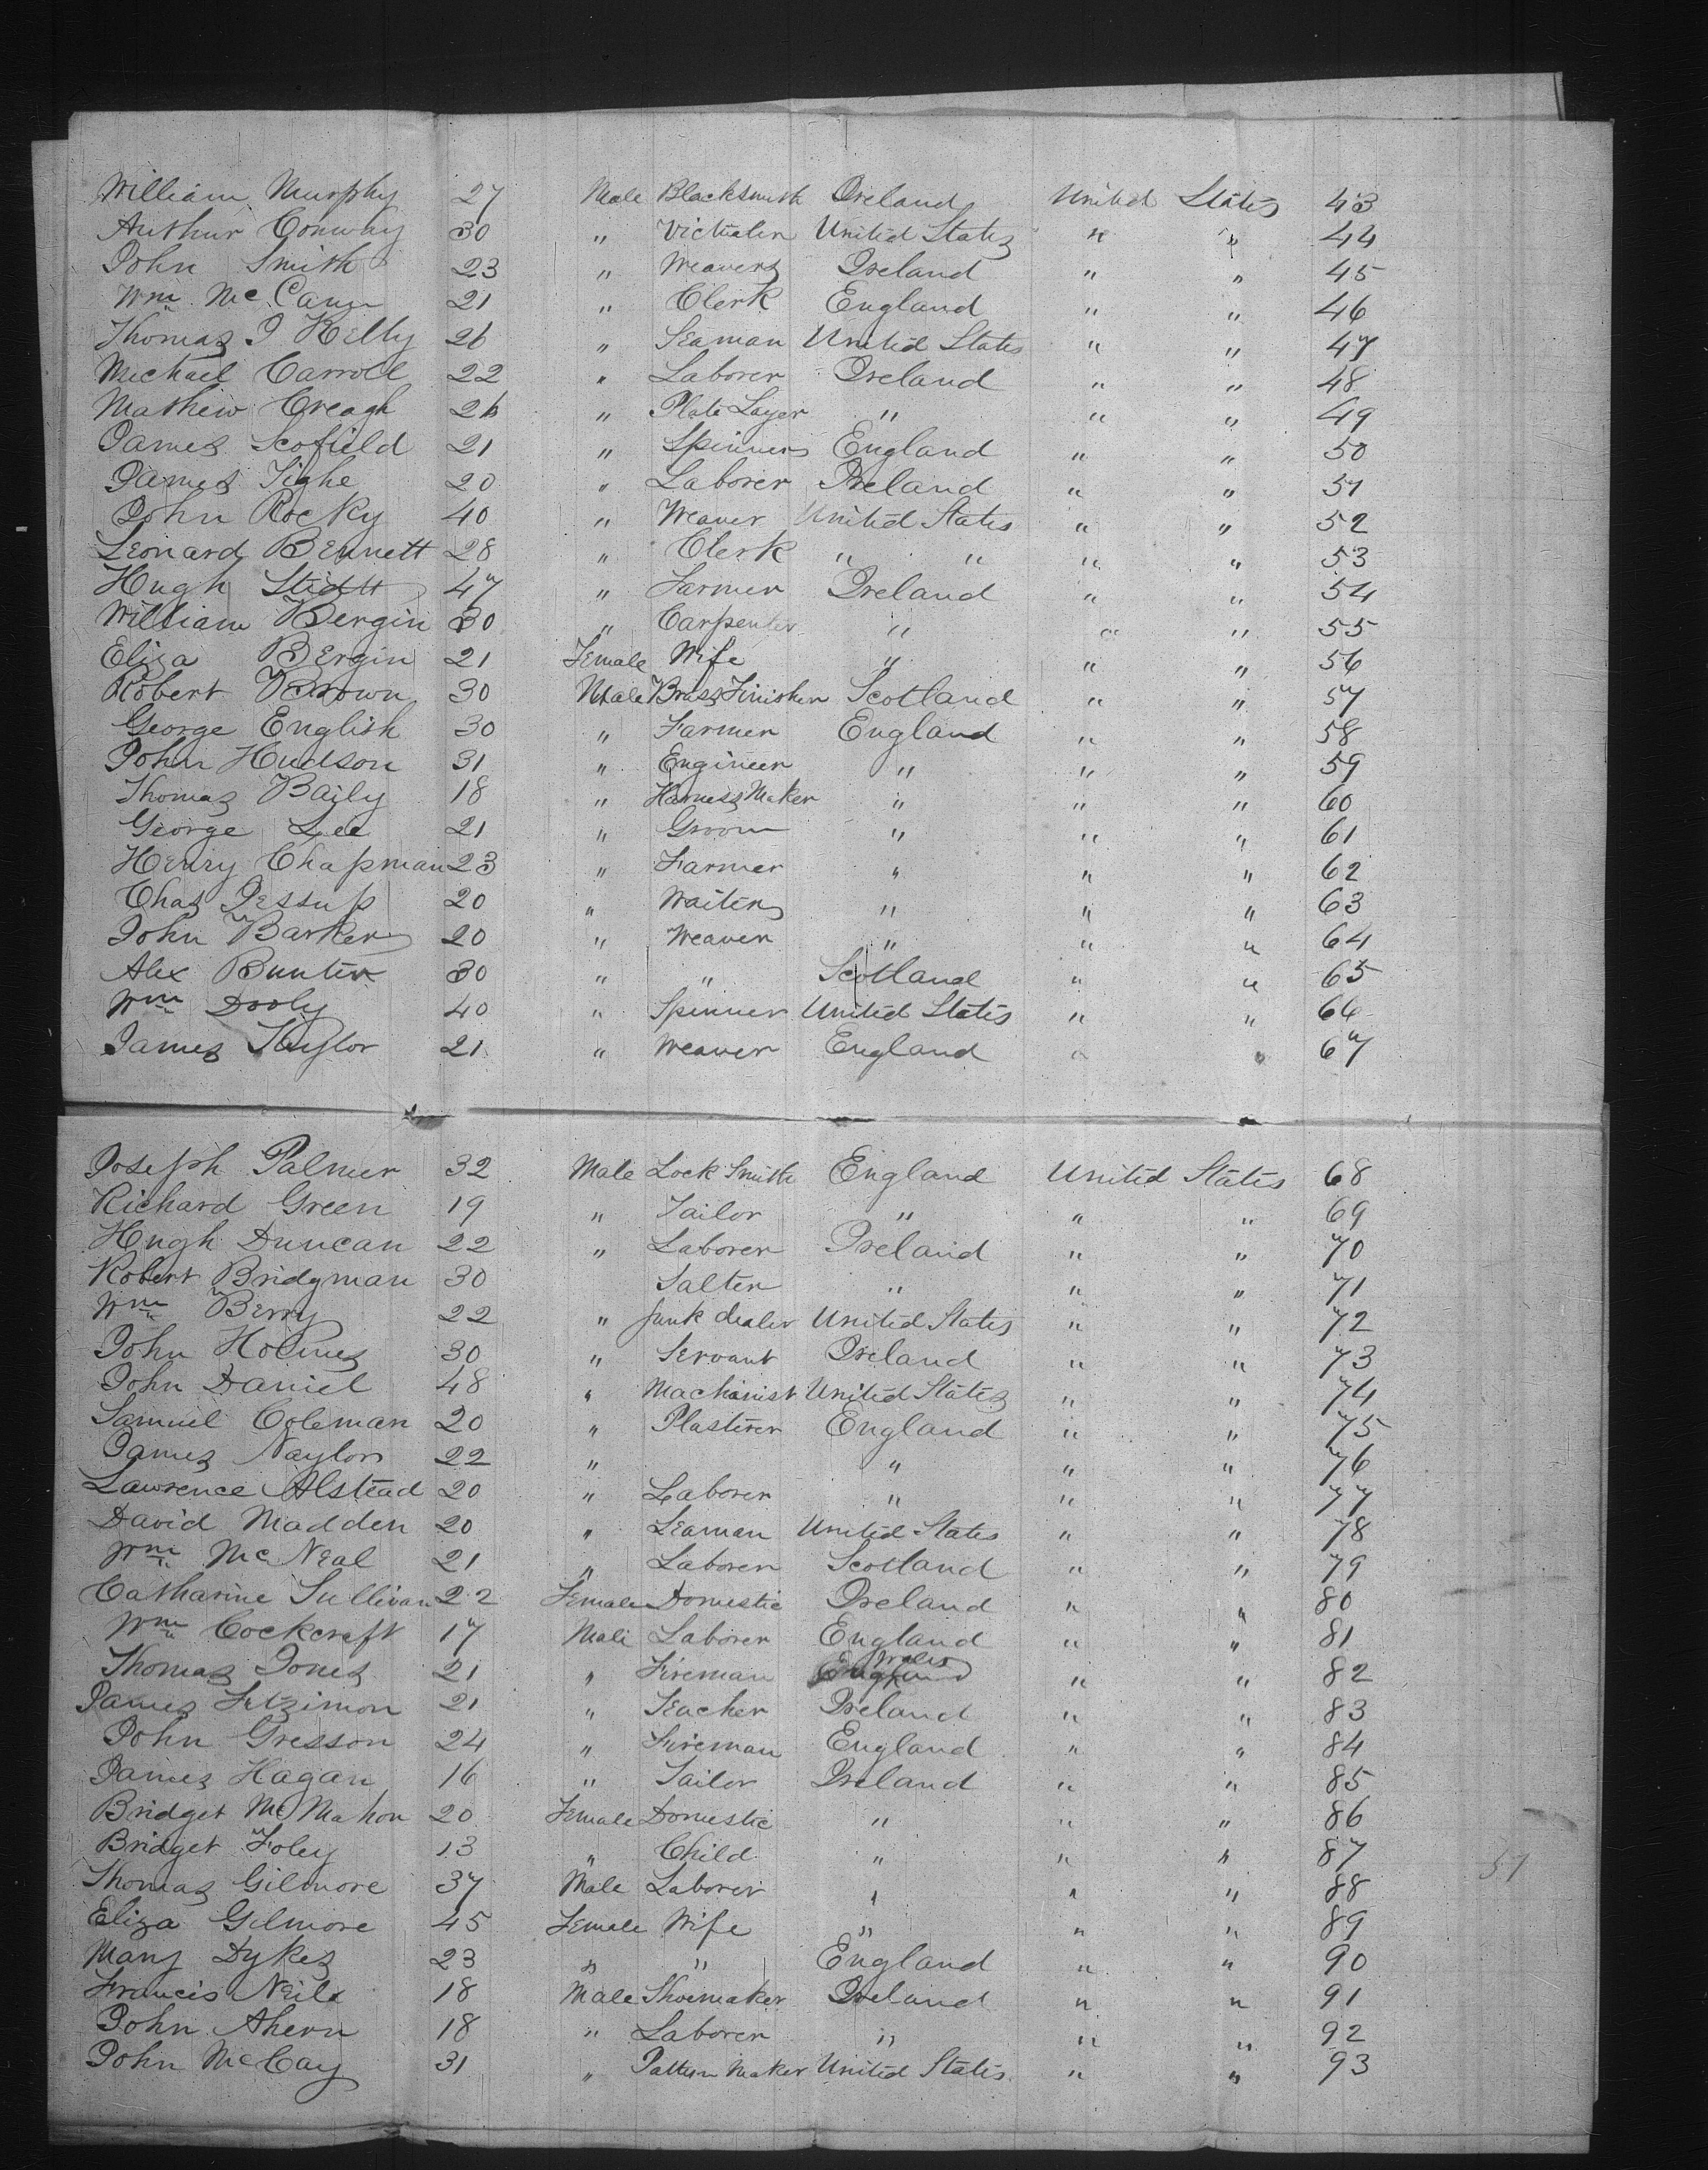 William Murphy 27 Male Blacksmith Ireland United States 43
Arthur Conway 30 " Victualer United States " " 44
John Smith 23 " Weaver Ireland " " 45
Wm Mc Cann 21 " Clerk England " " 46
Thomas J Kelly 26 " Seaman United States " " 47
Michael Carroll 22 " Laborer Ireland " " 48
Mathew Creagh 26 " Plate Layer " " " 49
James Scofield 21 " Spinner England " " 50
James Tighe 20 " Laborer Ireland " " 51
John Rocky 40 " Weaver United States " " 52
Leonard Bennett 28 " Clerk " " " " 53
Hugh 47 " Farmer Ireland " " 54
William Bergin 30 " Carpenter " " " 55
Eliza Bergin 21 Female Wife " " " 56
Robert Brown 30 Male Brass Finisher Scotland " " 57
George English 30 " Farmer England " " 58
John Hudson 31 " Engineer " " " 59
Thomas Baily 18 " Harness Maker " " " 60
George Lee 21 " Groom " " " 61
Henry Chapman 23 " Farmer " " " 62
Chas Jessup 20 " Waiter " " " 63
John Barker 20 " Weaver " " " 64
Alex Bunten 30 " " Scotland " " 65
Wm Dooly 40 " Spinner United States " " 66
James Taylor 21 " Weaver England " " 67
Joseph Palmer 32 Male Lock Smith England United States 68
Richard Green 19 " Tailor " " " 69
Hugh Duncan 22 " Laborer Ireland " " 70
Robert Bridgman 30 Salter " " " 71
Wm Berry 22 " Junk dealer United States " " 72
John Holmes 30 " Servant Ireland " " 73
John Daniel 48 " Machinist United States " " 74
Samuel Coleman 20 " Plasterer England " " 75
James Naylor 22 " " " " 76
Lawrence Alstead 20 " Laborer " " " 77
David Madden 20 " Seaman United States " " 78
Wm Mc Neal 21 " Laborer Scotland " " 79
Catharine Sullivan 22 Female Domestic Ireland " " 80
Wm Cockcroft 17 Male Laborer England " " 81
Thomas Jones 21 " Fireman England Wales " " 82
James Fitzimon 21 " Teacher Ireland " " 83
John Gresson 24 " Fireman England " " 84
James Hagan 16 " Tailor Ireland " " 85
Bridget Mc Mahon 20 Female Domestic " " " 86
Bridget Foley 13 " Child " " " 87
Thomas Gilmore 37 Male Laborer " " " 88
Eliza Gilmore 45 Female Wife " " " 89
Mary Dykes 23 " " England " " 90
Francis Neile 18 Male Shoemaker Ireland " " 91
John Ahern 18 " Laborer " " " 92
John McCay 31 " Pattern Maker United States " " 93